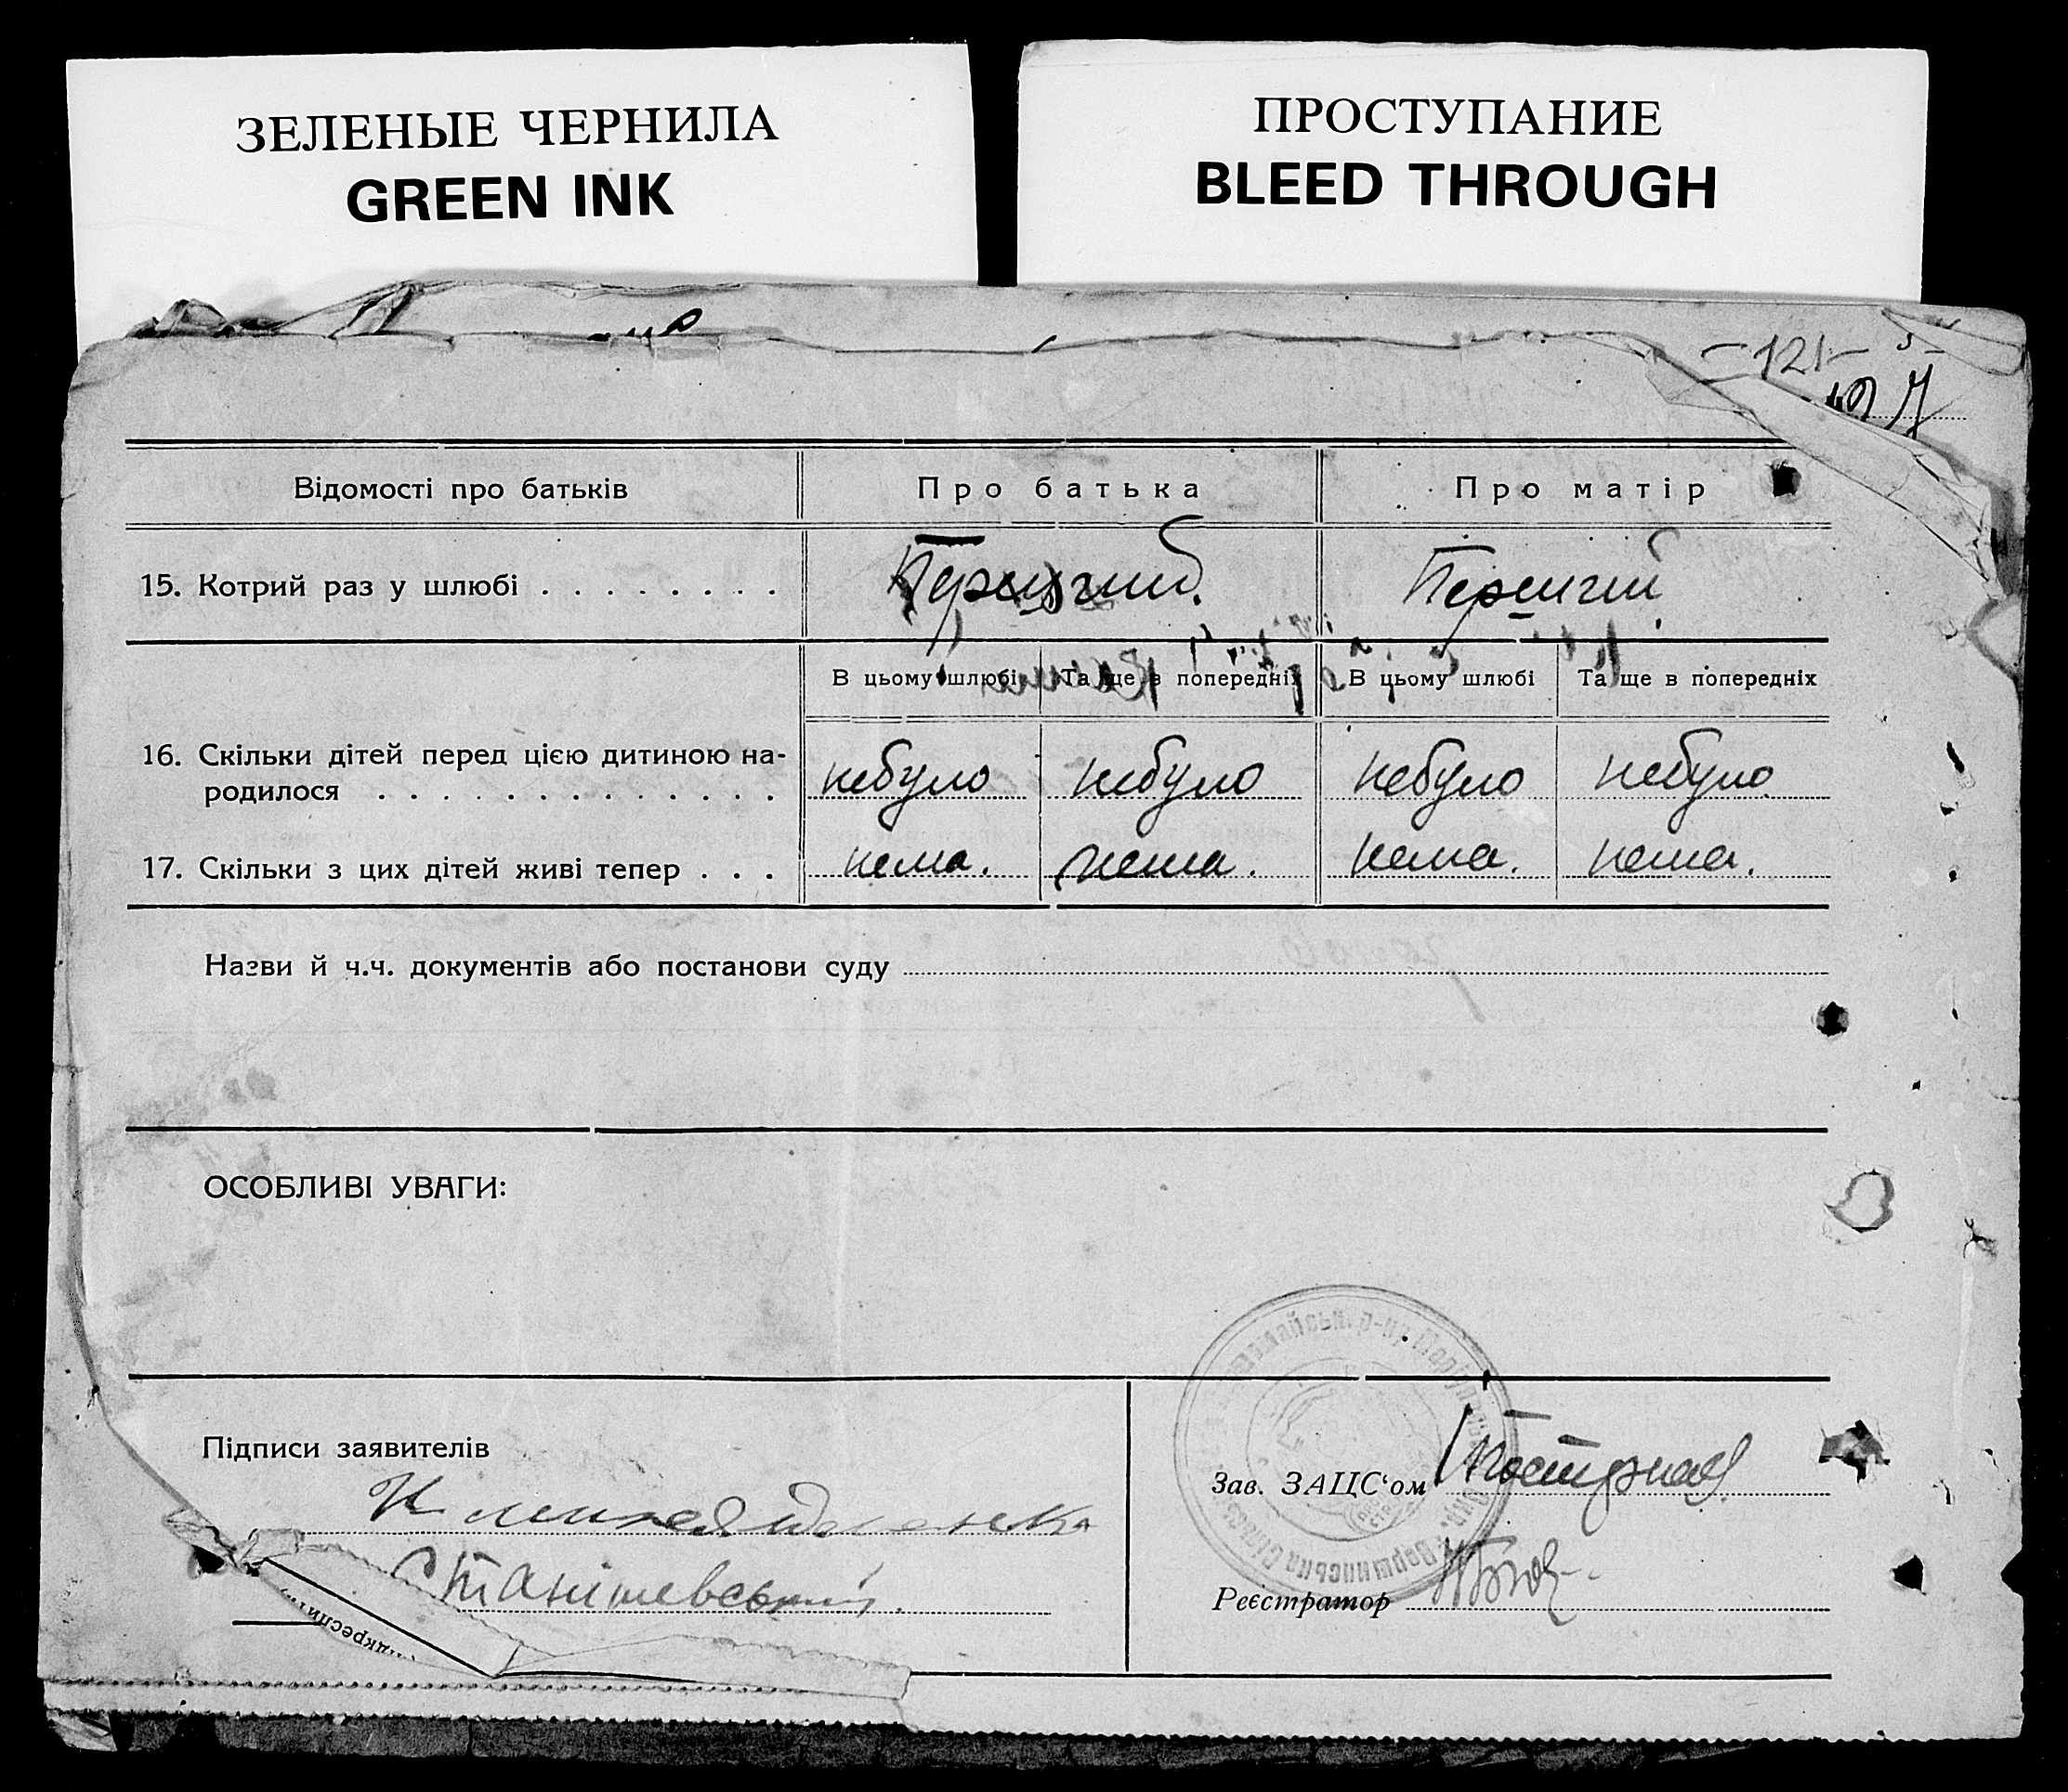 ЗЕЛЕНЫЕ ЧЕРНИЛА
GREEN INK
ПРОСТУПАНИЕ
BLEED THROUGH
-121-
Відомості про батьків Про батька Про матір
15. Котрий раз у шлюбі . . . . . . . . Перший. Перший
В цьому шлюбі Та ще в попередніх В цьому шлюбі Та ще в попередніх
16. Скільки дітей перед цією дитиною на-
родилося . . . . . . . . . . . . . небуло небуло небуло небуло
17. Скільки з цих дітей живі тепер . . . нема. нема. нема. нема.
Назви й ч.ч. документів або постанови суду
ОСОБЛИВІ УВАГИ:
Підписи заявителів
Станішевський.
Зав. ЗАЦС‘ом
Реєстратор